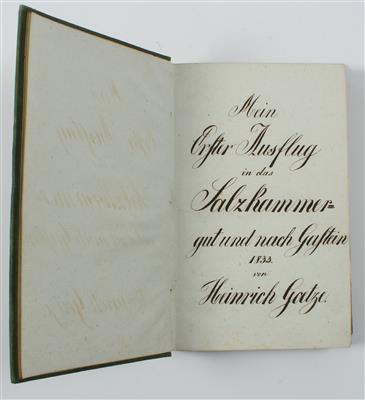 Mein
Erster Ausflug
in das
Salzkammer=
gut und nach Gastein
1833.
von
Heinrich Goetze.